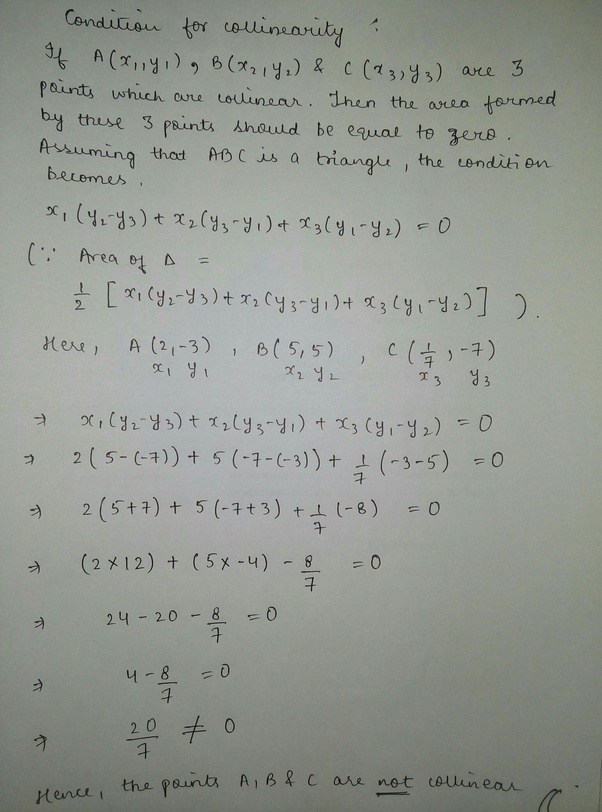 Condition for collinearity :
If A(x₁,y₁), B(x₂,y₂) & C(x₃,y₃) are 3
points which are collinear. Then the area formed
by these 3 points should be equal to zero.
Assuming that ABC is a triangle, the condition
becomes,
x₁(y₂-y₃) + x₂(y₃-y₁) + x₃(y₁-y₂) = 0
(∵ Area of Δ =
1/2 [x₁(y₂-y₃) + x₂(y₃-y₁) + x₃(y₁-y₂)] ).
Here, A(2,-3), B(5,5), C(1/7, -7)
x₁ y₁ x₂ y₂ x₃ y₃
⇒ x₁(y₂-y₃) + x₂(y₃-y₁) + x₃(y₁-y₂) = 0
⇒ 2(5-(-7)) + 5(-7-(-3)) + 1/7(-3-5) = 0
⇒ 2(5+7) + 5(-7+3) + 1/7(-8) = 0
⇒ (2×12) + (5×-4) - 8/7 = 0
⇒ 24 - 20 - 8/7 = 0
⇒ 4 - 8/7 = 0
⇒ 20/7 ≠ 0
Hence, the points A, B & C are not collinear